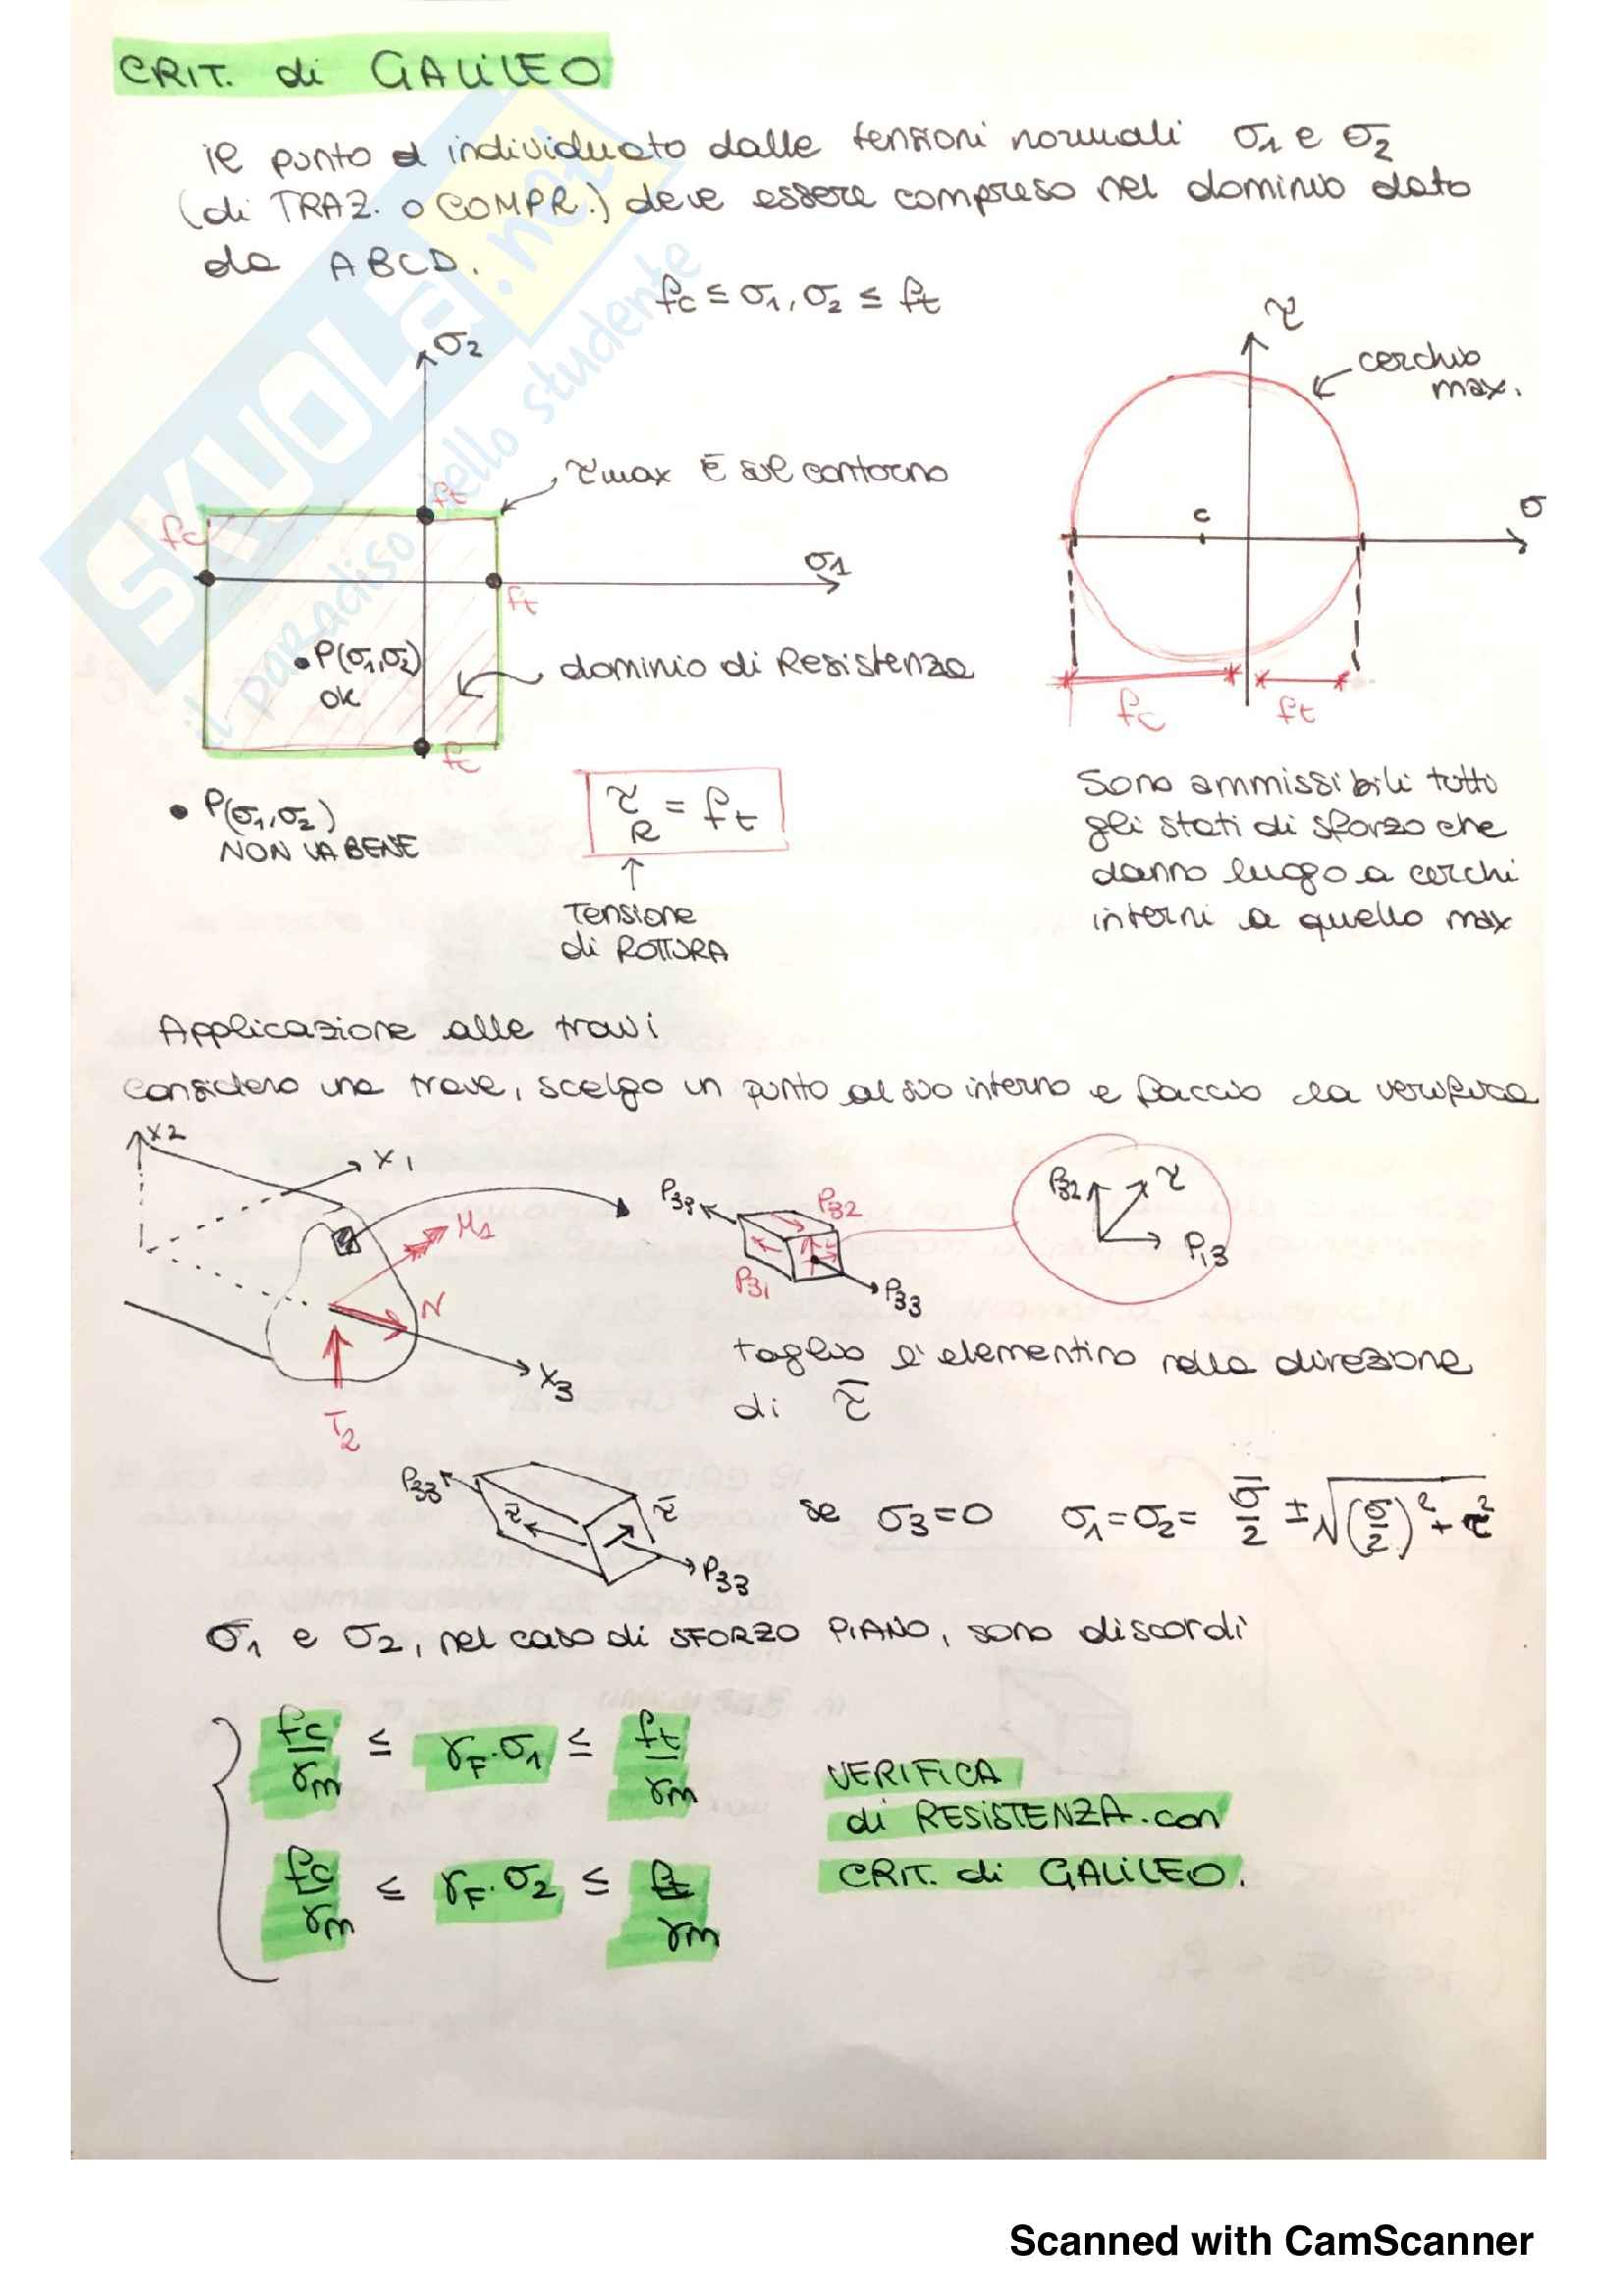 CRIT. di GALILEO
il punto è individuato dalle tensioni normali σ1 e σ2
(di TRAZ. o COMPR.) deve essere compreso nel dominio dato
da ABCD.
fc ≤ σ1, σ2 ≤ ft
σ2
τ
cerchio
max.
τmax È sul contorno
ft
fc
c
σ
σ1
ft
P(σ1,σ2)
OK
dominio di Resistenza
fc
fc
ft
P(σ1,σ2)
NON VA BENE
τR = ft
Tensione
di ROTTURA
Sono ammissibili tutti
gli stati di sforzo che
danno luogo a cerchi
interni a quello max
Applicazione alle travi
considero una trave, scelgo un punto al suo interno e faccio la verifica
x2
x1
M1
N
x3
T2
P33
P32
P31
P33
P32
τ
P13
taglio l'elementino nella direzione
di τ̅
P33
τ̅
τ̅
P33
se σ3=0 σ1=σ2= σ̅/2 ± √((σ/2)² + τ²)
σ1 e σ2, nel caso di SFORZO PIANO, sono discordi
fc/γm ≤ γF·σ1 ≤ ft/γm
fc/γm ≤ γF·σ2 ≤ ft/γm
VERIFICA
di RESISTENZA.con
CRIT. di GALILEO.
SKUOLA.net
il paradiso dello studente
Scanned with CamScanner